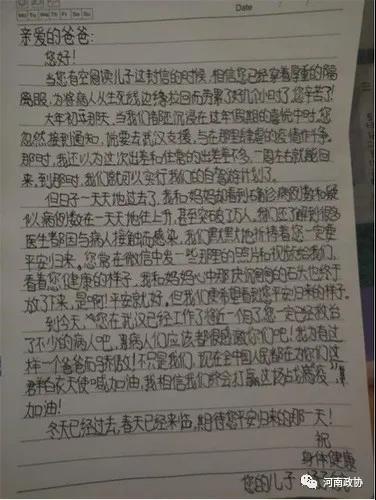 Mo Tu We Th Fr Sa Su
Date
亲爱的爸爸：
您好！
当您有空阅读儿子这封信的时候，相信您已经穿着厚重的隔
离服，为将病人从生死线边缘拉回而劳累了好几个小时了，您辛苦了！
大年初五那天，当我们还沉浸在这年假期的喜悦中时，您
忽然接到通知，说要去武汉支援，与在那里肆虐的疫情作斗争。
那时，我还以为这次出差和往常的出差差不多，一周左右就能回
来，到那时，我们就可以实行我们的自驾游计划了。
但日子一天天地过去了，我和妈妈却看到确诊病例数和疑
似病例数在一天天地往上升，甚至突破了万人，我们还了解到很多
医生都因与病人接触而感染，我们默默地祈祷着您一定要
平安归来。您常在微信中发一些那里的照片和视频给我们，
看着您健康的样子，我和妈妈心中那块沉甸甸的石头也终于
放了下来，是啊！平安就好，但我们更希望看到您平安归来的样子。
到今天，您在武汉已经工作了将近一个月了，您一定已经救治
了不少的病人吧，病人们应该都很感激你们吧！我为有过
样一个爸爸而骄傲！不只是我们，现在全中国人民都在为你们这
群白衣天使喊加油，我相信我们终会打赢这场"战疫"！
加油！
冬天已经过去，春天已经来临，期待您平安归来的那一天！
祝
身体健康
您的儿子
河南政协